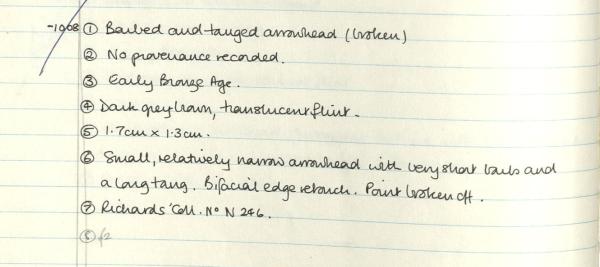 -1908 ① Barbed and tanged arrowhead (broken)
② No provenance recorded.
③ Early Bronze Age.
④ Dark grey/brown, translucent flint.
⑤ 1.7cm x 1.3cm.
⑥ Small, relatively narrow arrowhead with very short barbs and
a long tang. Bifacial edge retouch. Point broken off.
⑦ Richards' Coll. No N 246.
⑧ f2